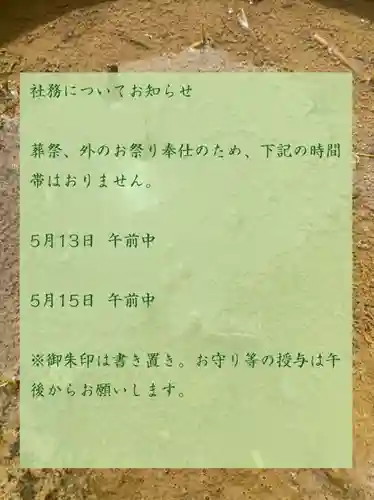 社務についてお知らせ
葬祭、外のお祭り奉仕のため、下記の時間
帯はおりません。
5月13日 午前中
5月15日 午前中
※御朱印は書き置き。お守り等の授与は午
後からお願いします。